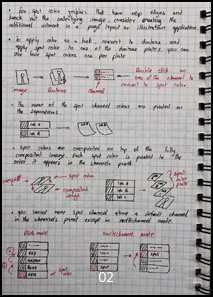 • For spot color graphics that have crisp edges and
knock out the underlying image, consider creating the
additional artwork in a page layout or illustration application.
• to apply spot color as a tint, convert to duotone and
apply spot color to one of the duotone plates, you can
use four spot colors, one per plate
Double click on
one of the channel to
convert to spot color
image
Duotone
channel
• The names of the spot channel colors are printed on
the separations
• spot colors are overprinted on top of the fully
composited image. Each spot color is printed in the
order it appears in the channels panel.
overprint
spot color
composited
image
spot color
• you cannot move spot channel above a default channel
in the channels panel except in multichannel mode.
multichannel mode
spot color
02